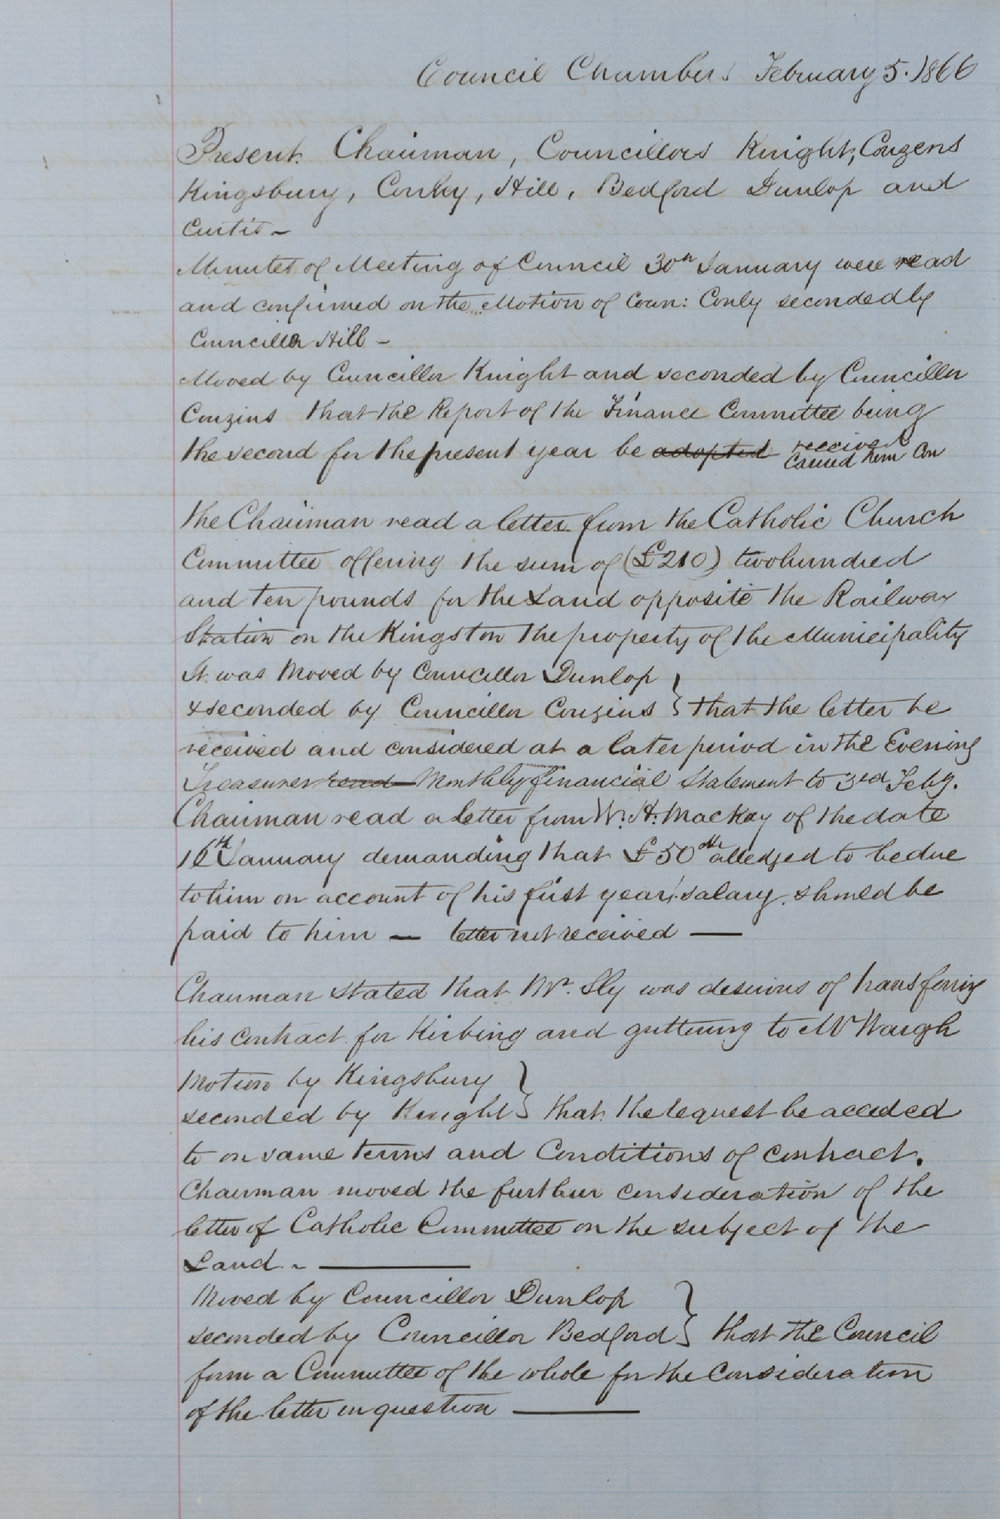 Council Chambers February 5. 1866
Present. Chairman, Councillors Knight, Couzens
Kingsbury, Conly, Hill, Bedford Dunlop and
Curtis –
Minutes of Meeting of Council 30th January were read
and confirmed on the Motion of Coun: Conly seconded by
Councillor Hill –
Moved by Councillor Knight and seconded by Councillor
Couzins that the Report of the Finance Committee being
the second for the present year be adopted received
Carried Nem Con
The Chairman read a letter from the Catholic Church
Committee offering the sum of (£210) two hundred
and ten pounds for the Land opposite the Railway
Station on the Kingston the property of the Municipality
It was Moved by Councillor Dunlop
& seconded by Councillor Couzins } that the letter be
received and considered at a later period in the Evening
Treasurer read Monthly financial statement to 3rd Feby.
Chairman read a letter from W. H. Mackay of the date
16th January demanding that £50 alledged to be due
to him on account of his first year's salary should be
paid to him — letter not received —
Chairman stated that Mr. Sly was desirous of transferring
his contract for Kirbing and guttering to Mr Waugh
Motion by Kingsbury
seconded by Knight } that the request be acceded
to on same terms and Conditions of contract.
Chairman moved the further consideration of the
letter of Catholic Committee on the subject of the
Land. –
Moved by Councillor Dunlop
seconded by Councillor Bedford } that the Council
form a Committee of the whole for the consideration
of the letter in question —